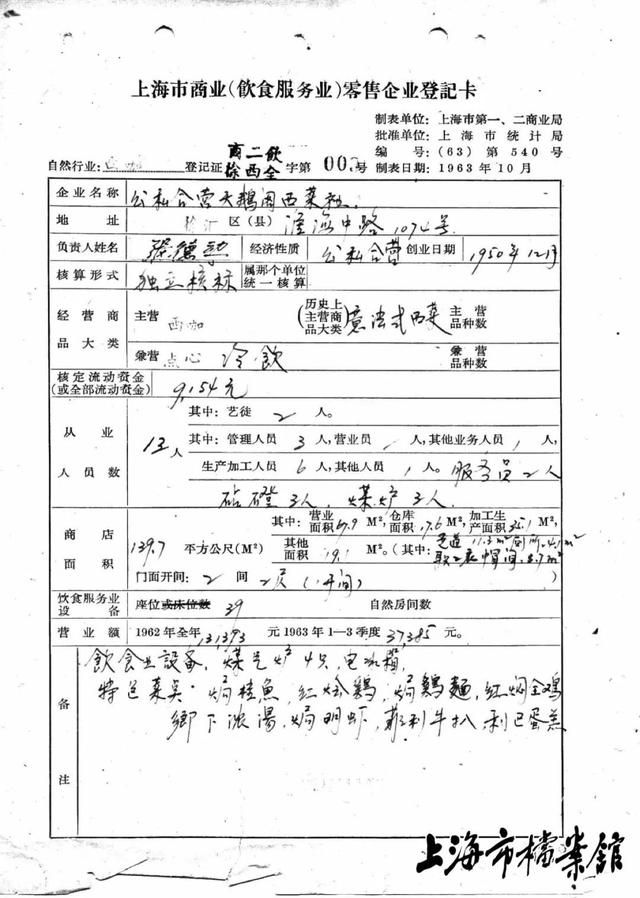 上海市商业(飲食服务业)零售企业登記卡
制表单位:上海市第一、二商业局
批准单位:上海市统计局
編号:(63)第540号
自然行业: 西咖 登记证 商二飲 徐西全 字第 00 号 制表日期:1963年10月
企业名称 公私合营天鹅阁西菜社
地址 徐汇区(县) 淮海中路1074号
负责人姓名 经济性质 公私合营 创业日期 1950年12月
核算形式 独立核标 属那个单位统一核算
经营商品大类 主营 西咖 (历史上主营商品大类) 意法式西菜 主营品种数
兼营 点心 冷飲 兼营品种数
核定流动资金(或全部流动资金) 9,154元
从业人员数 13人 其中:艺徒 2 人。
其中:管理人员 3 人,营业员 人,其他业务人員 人,
生产加工人員 6 人,其他人員 1 人。服务员2人
砧磴3人 煤炉3人
商店面积 139.7 平方公尺(M²) 其中:营业面积 67.9 M²,仓库面积 17.6 M²,加工生产面积 35.1 M²
其他面积 19.1 M²。(其中:走道11.3m² 厕所4.1m²
門面开間: 2 间 2层(1开间) 取衣帽间3.7m²
飲食服务业设备 座位或床位数 39 自然房间数
营业額 1962年全年 131,393 元 1963年1—3季度 37,385 元。
备注 飲食业設备,煤气炉 只,电冰箱,
特色菜类:焗桂魚,红烩鷄,焗鷄麵,红焖全鸡
鄉下浓湯,焗明虾,菲利牛扒,利巴蛋羔
上海市檔案館